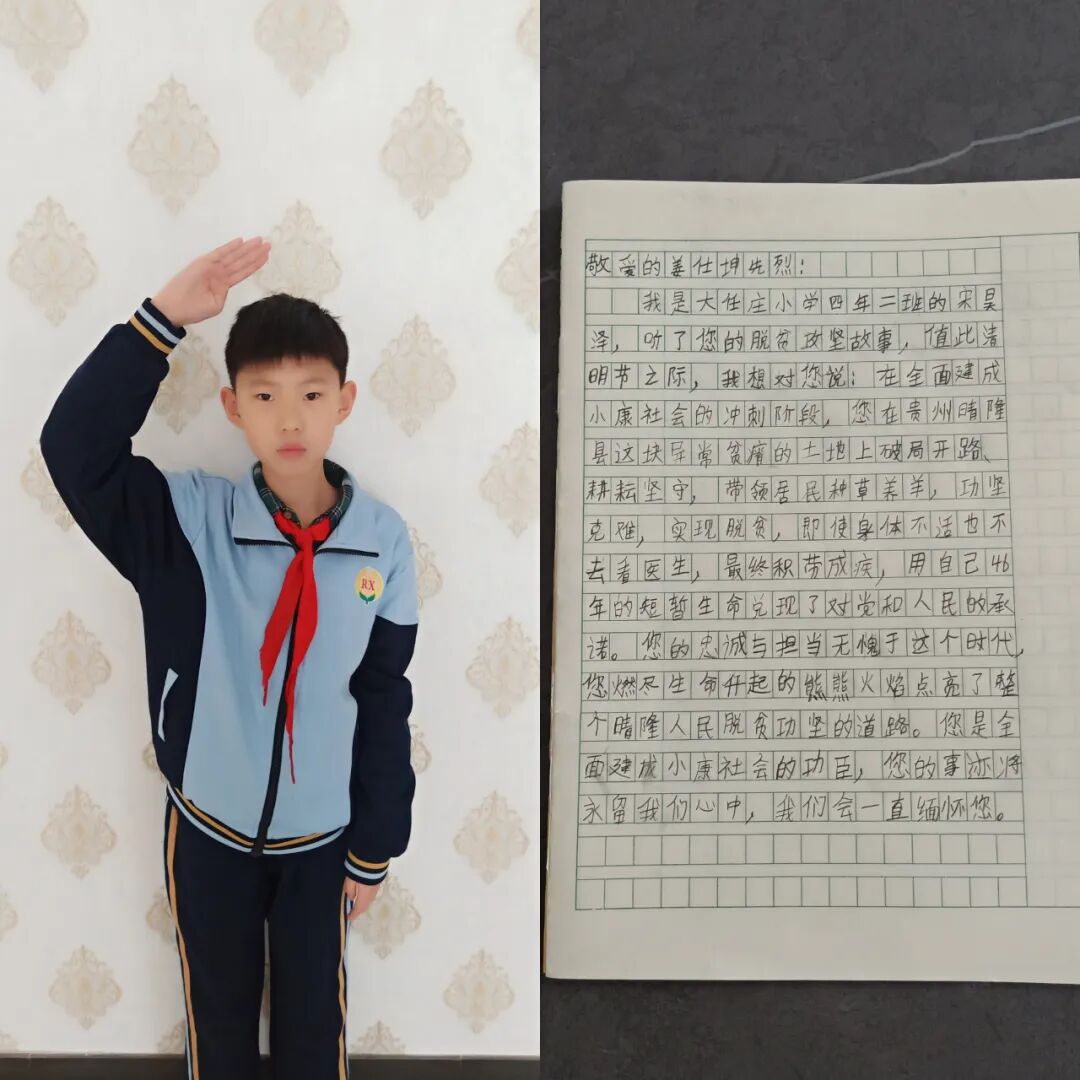 RX
敬爱的姜仕坤先烈：
我是大任庄小学四年二班的宋昊
泽，听了您的脱贫攻坚故事，值此清
明节之际，我想对您说：在全面建成
小康社会的冲刺阶段，您在贵州晴隆
县这块异常贫瘠的土地上破局开路、
耕耘坚守，带领居民种草养羊，功坚
克难，实现脱贫，即使身体不适也不
去看医生，最终积劳成疾，用自己46
年的短暂生命兑现了对党和人民的承
诺。您的忠诚与担当无愧于这个时代，
您燃尽生命升起的熊熊火焰点亮了整
个晴隆人民脱贫功坚的道路。您是全
面建成小康社会的功臣，您的事迹将
永留我们心中，我们会一直缅怀您。